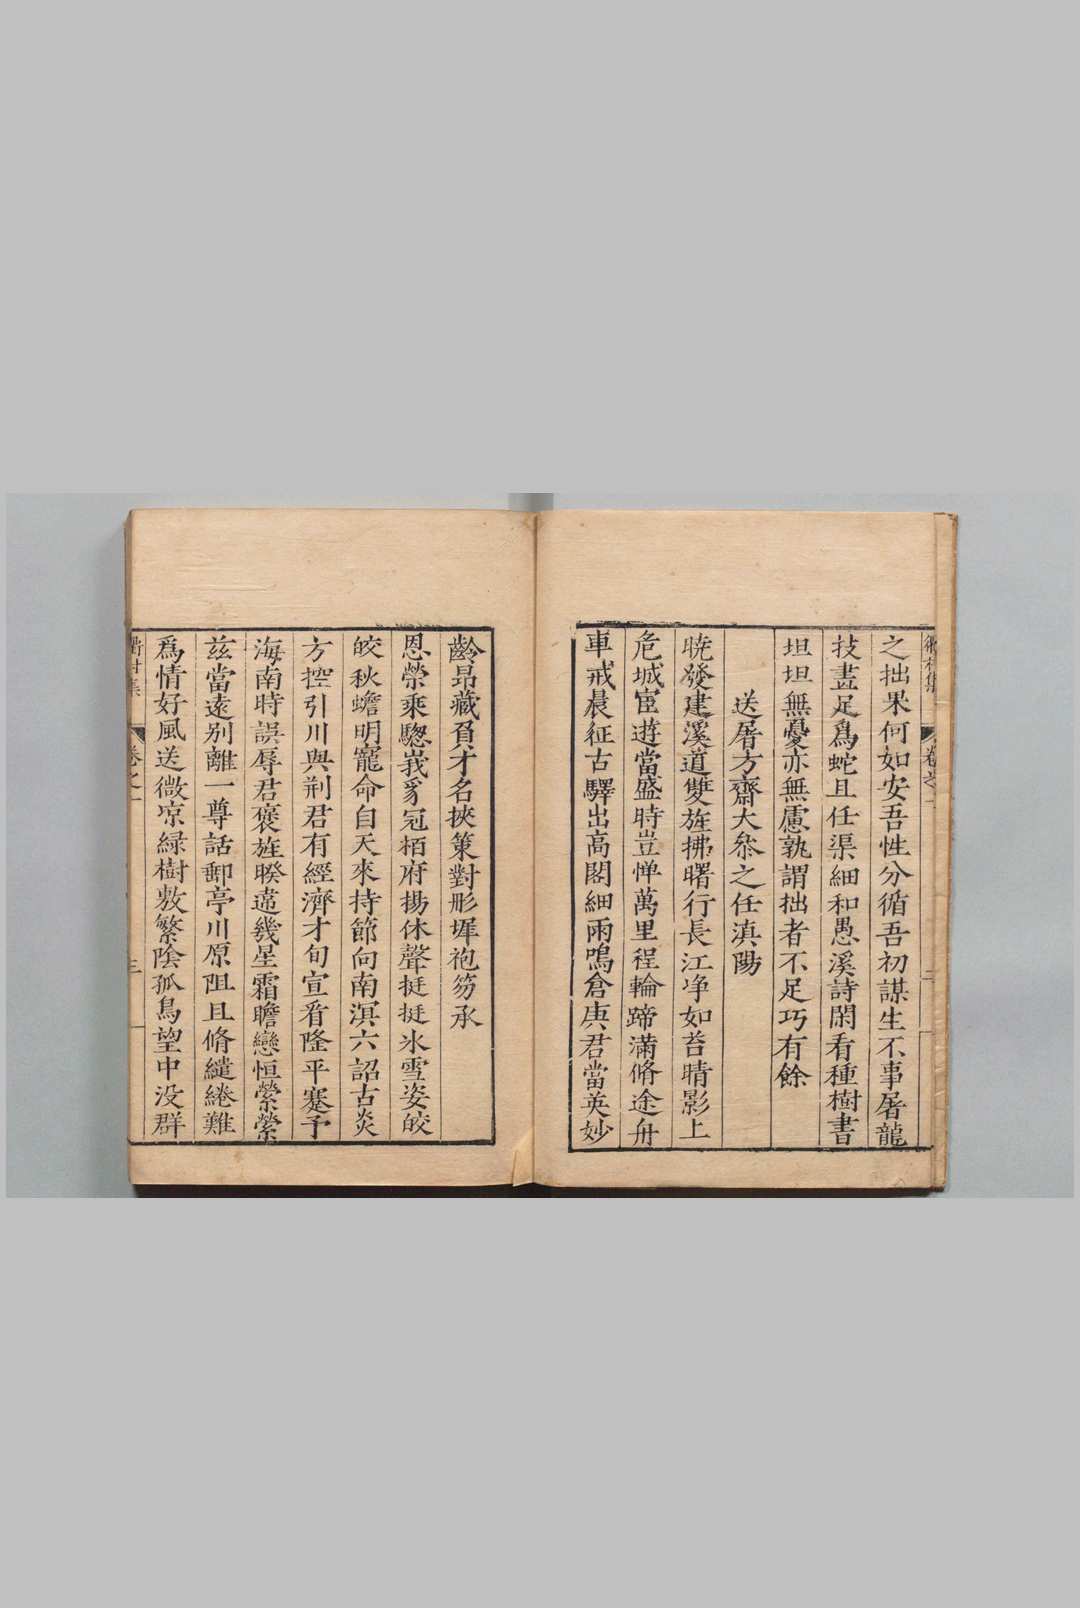 之拙果何如安吾性分循吾初謀生不事屠龍
技畫足爲蛇且任渠細和愚溪詩閑看種樹書
坦坦無憂亦無慮孰謂拙者不足巧有餘
送屠方齋大叅之任滇陽
曉發建溪道雙旌拂曙行長江净如苔晴影上
危城宦遊當盛時豈憚萬里程輪蹄滿脩途舟
車戒晨征古驛出高閣細雨鳴倉庚君當英妙
齡昂藏負才名挾策對彤墀袍笏承
恩榮乘驄峩豸冠栢府揚休聲挺挺氷雪姿皎
皎秋蟾明寵命自天來持節向南溟六詔古炎
方控引川與荆君有經濟才旬宣看隆平蹇予
海南時誤辱君褒旌暌違幾星霜瞻戀恒縈縈
兹當遠别離一尊話郵亭川原阻且脩繾綣難
爲情好風送微凉緑樹敷繁陰孤鳥望中没群
卷之一
三